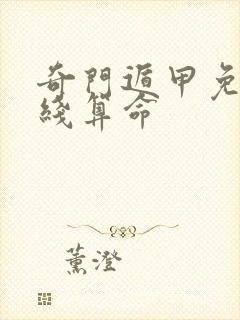 奇門遁甲免
綫算命
薰澄